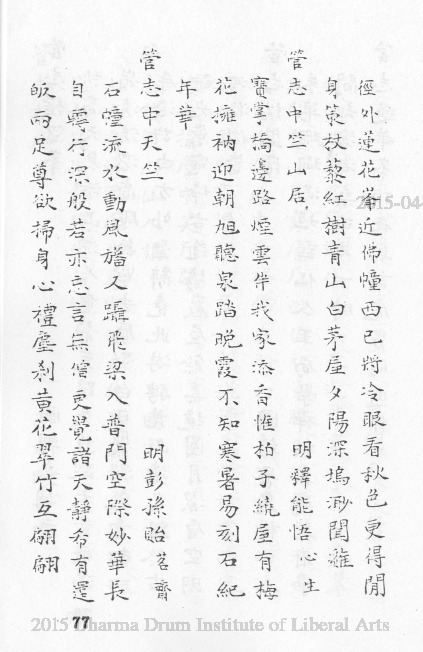 徑外蓮花峯近佛幢西已將冷眼看秋色更得閒
身策杖藜紅樹青山白茅屋夕陽深塢渺閨離
管志中竺山居　明釋能悟心生
寶掌橋邊路煙雲伴我家添香惟柏子繞屋有梅
花擁衲迎朝旭聽泉踏晚霞不知寒暑易刻石紀
年華
管志中天竺　明彭孫貽茗齋
石幢流水動風旛人躡飛梁入普門空際妙華長
自雨行深般若亦忘言無儋更覺諸天靜希有還
皈兩足尊欲掃身心禮塵刹黃花翠竹互翩翩
77
2015-04
2015 Dharma Drum Institute of Liberal Arts